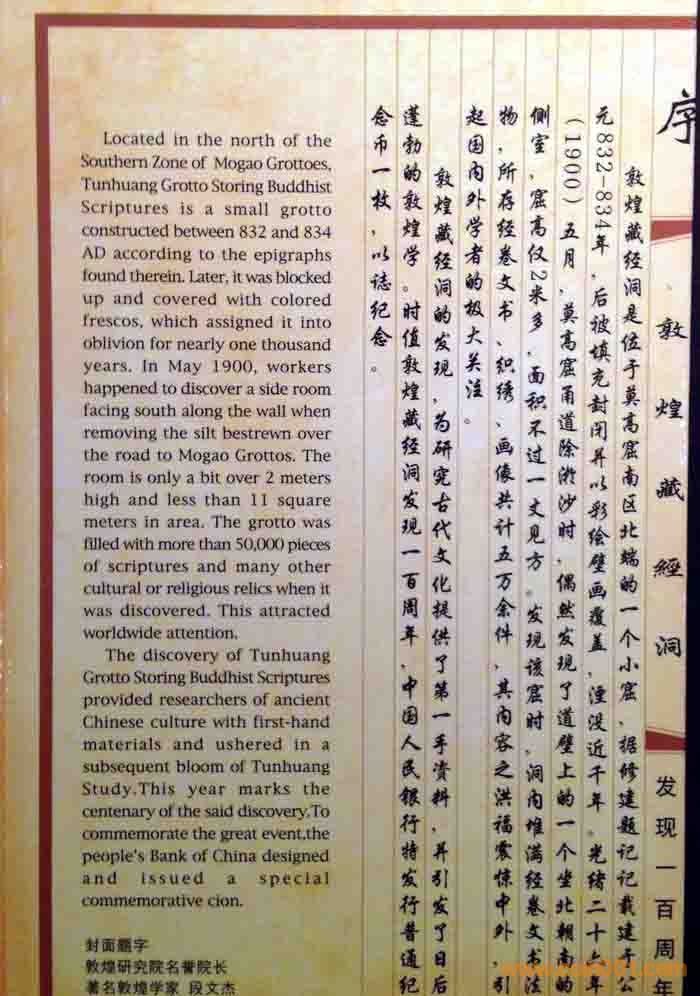 Located in the north of the
Southern Zone of Mogao Grottoes,
Tunhuang Grotto Storing Buddhist
Scriptures is a small grotto
constructed between 832 and 834
AD according to the epigraphs
found therein. Later, it was blocked
up and covered with colored
frescos, which assigned it into
oblivion for nearly one thousand
years. In May 1900, workers
happened to discover a side room
facing south along the wall when
removing the silt bestrewn over
the road to Mogao Grottos. The
room is only a bit over 2 meters
high and less than 11 square
meters in area. The grotto was
filled with more than 50,000 pieces
of scriptures and many other
cultural or religious relics when it
was discovered. This attracted
worldwide attention.
The discovery of Tunhuang
Grotto Storing Buddhist Scriptures
provided researchers of ancient
Chinese culture with first-hand
materials and ushered in a
subsequent bloom of Tunhuang
Study.This year marks the
centenary of the said discovery.To
commemorate the great event,the
people's Bank of China designed
and issued a special
commemorative cion.
封面題字
敦煌研究院名誉院长
著名敦煌学家 段文杰
序
敦煌藏經洞
发现一百周年
敦煌藏经洞是位于莫高窟南区北端的一个小窟、据修建题记记载建于公
元832-834年，后被填充封闭并以彩绘壁画覆盖，湮没近千年。光绪二十六年
（1900）五月，莫高窟甬道除淤沙时，偶然发现了道壁上的一个坐北朝南的
侧室，窟高仅2米多，面积不过一丈见方。发现该窟时，洞内堆满经卷文书法
物，所存经卷文书、织绣、画像共计五万余件，其内容之洪福震惊中外，引
起国内外学者的极大关注。
敦煌藏经洞的发现，为研究古代文化提供了第一手资料，并引发了日后
蓬勃的敦煌学。时值敦煌藏经洞发现一百周年，中国人民银行特发行普通纪
念币一枚，以誌纪念。